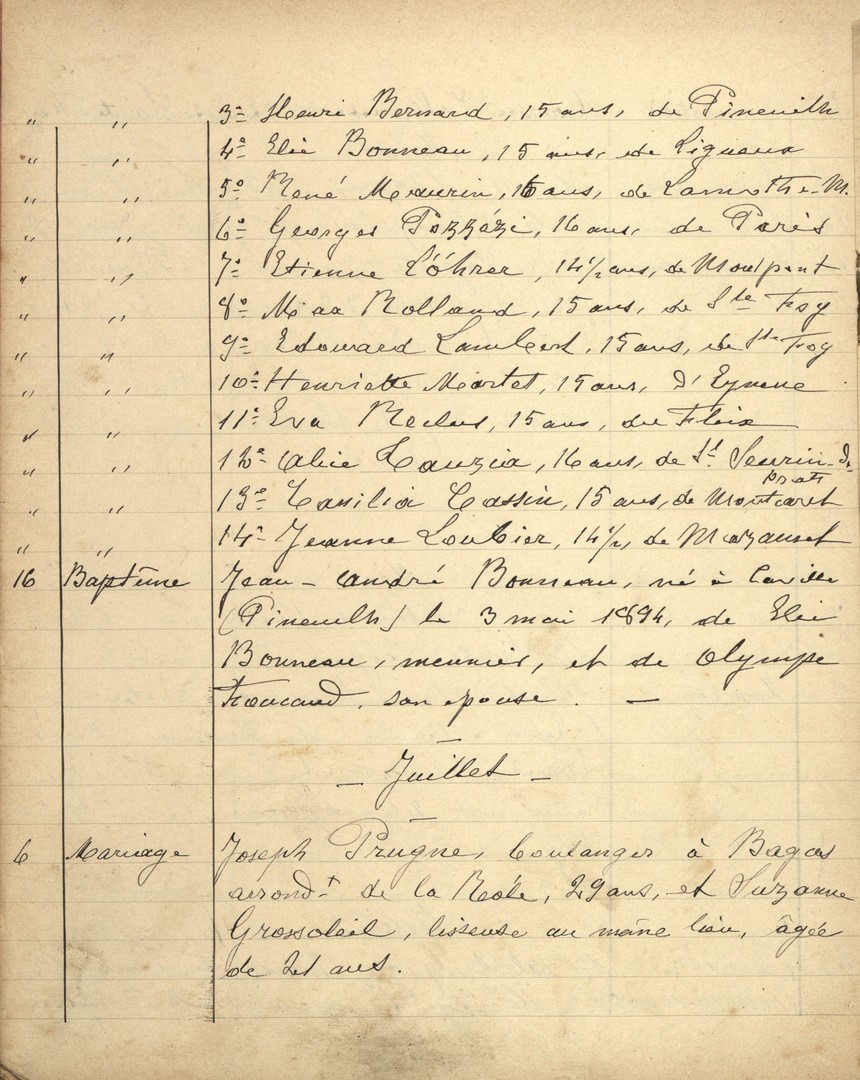 " " 3º Henri Bernard, 15 ans, de Pineuilh
" " 4º Elie Bonneau, 15 ans, de Ligueux
" " 5º René Maurin, 16 ans, de Lamothe-M.
" " 6º Georges Pozzézi, 16 ans, de Paris
" " 7º Etienne Löhrer, 14½ ans, de Montpont
" " 8º Max Rolland, 15 ans, de Ste Foy
" " 9º Edouard Lambert, 15 ans, de Ste Foy
" " 10º Henriette Martet, 15 ans, d'Eymene
" " 11º Eva Reclus, 15 ans, du Fleix
" " 12º Alice Lauzia, 16 ans, de St Seurin-de
Prats
" " 13º Cassin, 15 ans, de Montcaret
" " 14º Jeanne Loubier, 14½, de Mazamet
16 Baptême Jean-André Bonneau, né à Caville
(Pineuilh) le 3 mai 1894, de Elie
Bonneau, meunier, et de Olympe
Foucaud, son epouse. —
– Juillet –
6 Mariage Joseph Prugne, boulanger à Bagas
arrondt de la Réole, 29 ans, et Suzanne
Grossoleil, lisseuse au même lieu, âgée
de 21 ans.